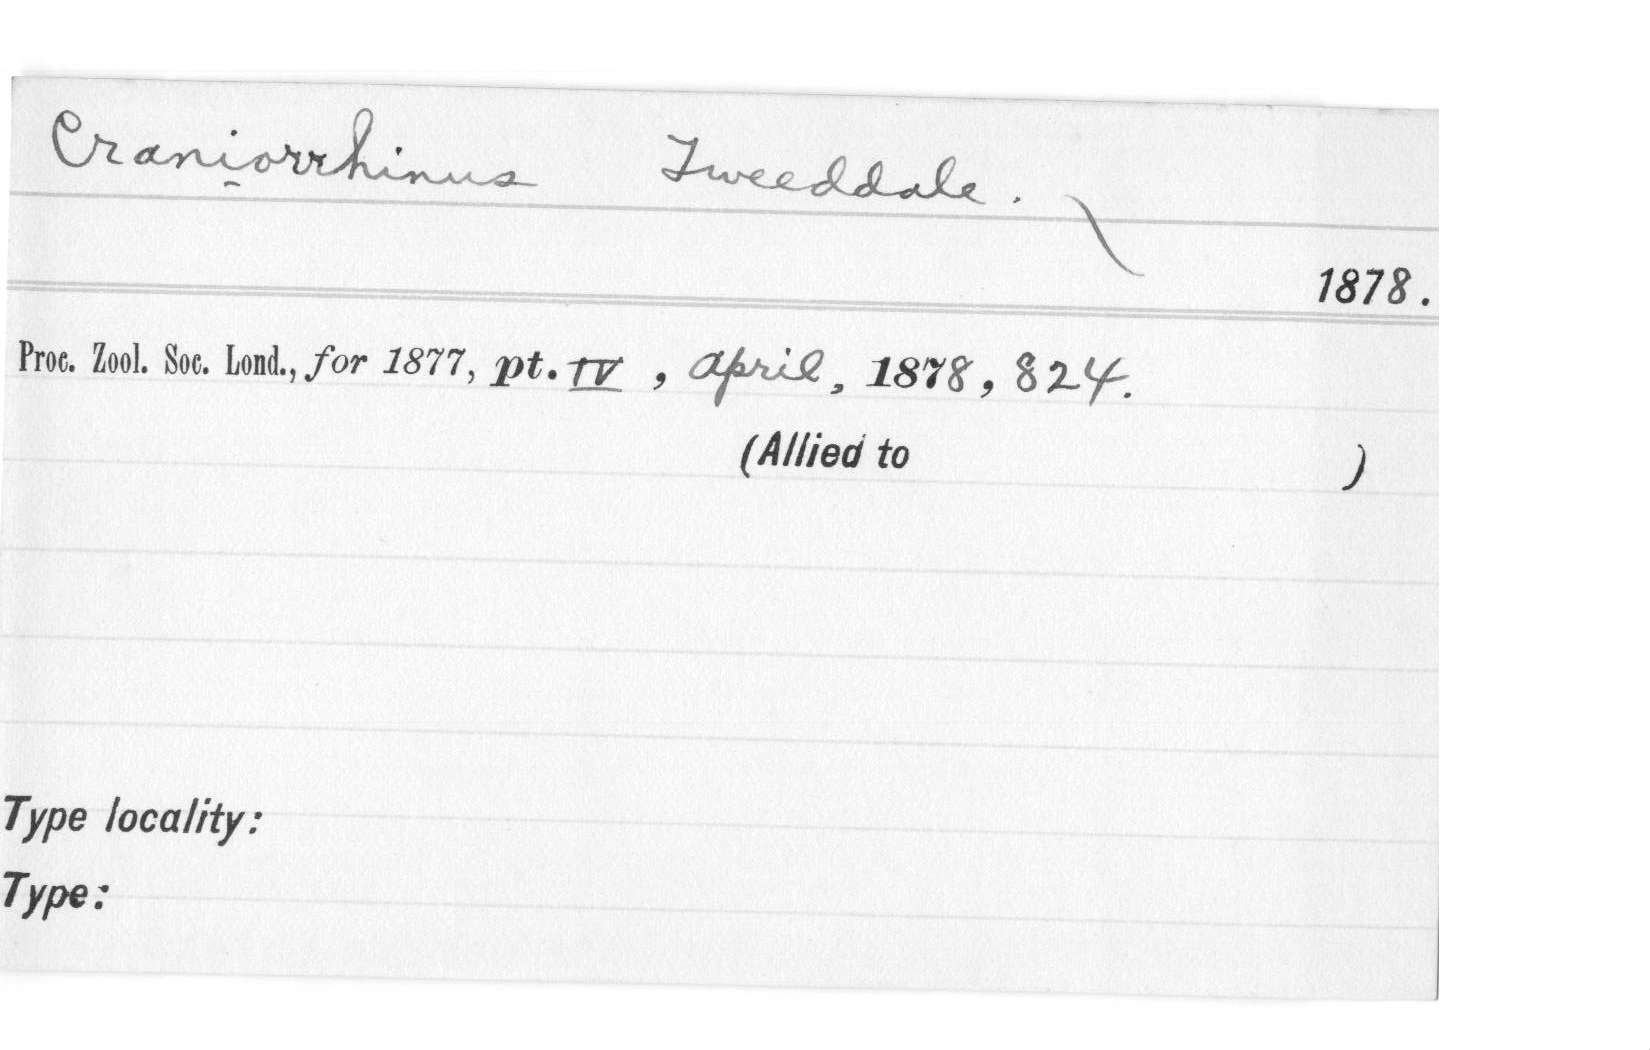 Craniorrhinus Tweeddale.
1878.
Proc. Zool. Soc. Lond., for 1877, pt. IV, April, 1878, 824.
(Allied to )
Type locality:
Type: